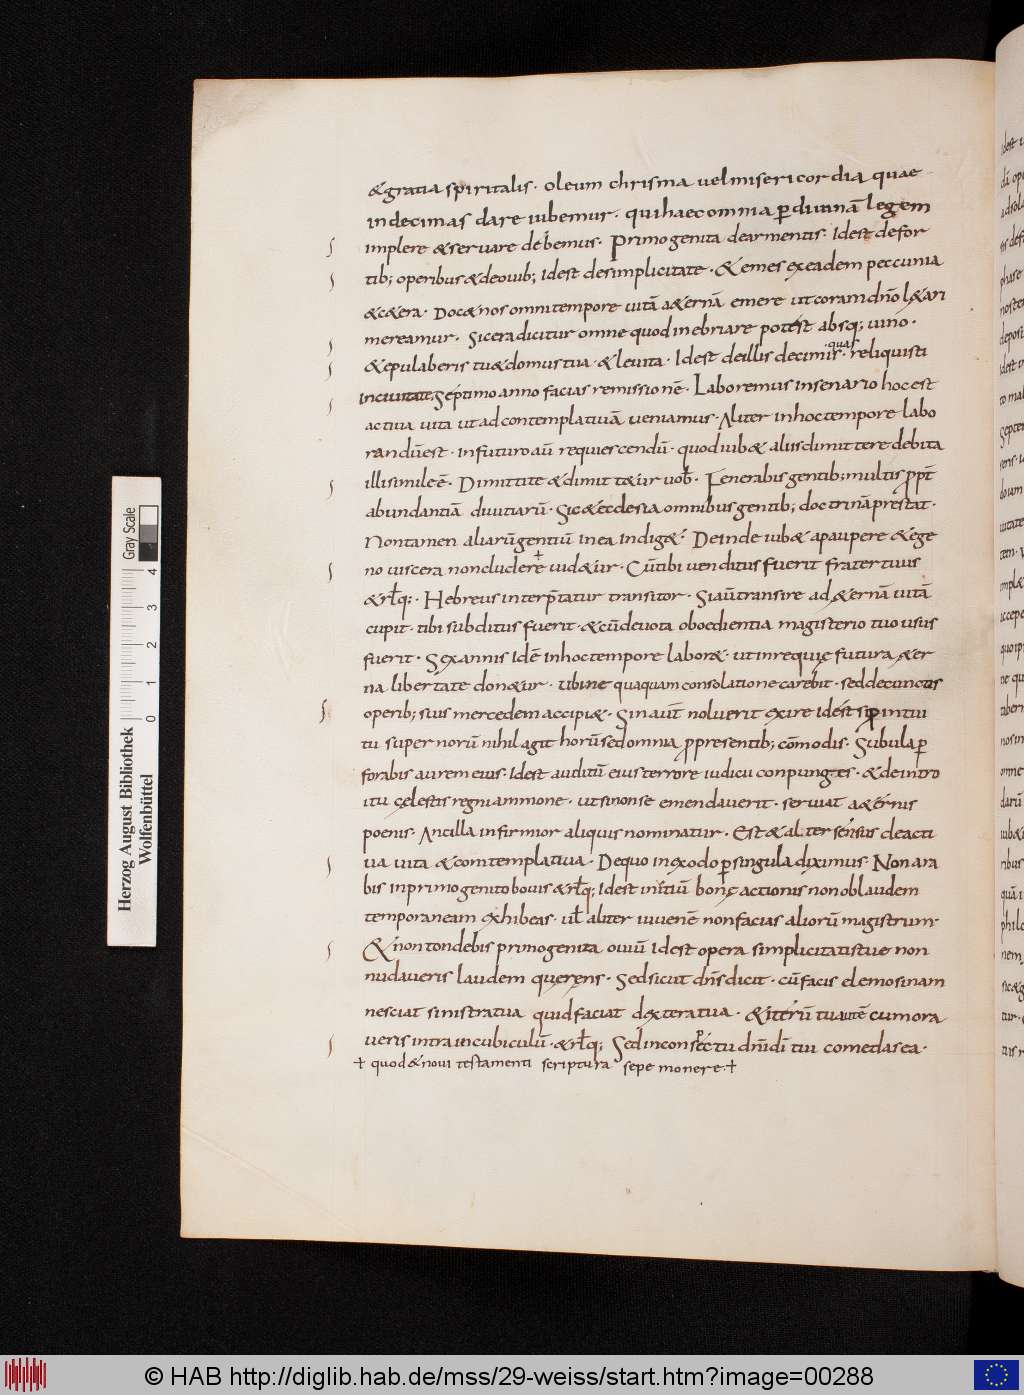 & gratia spiritalis · oleum chrisma uel misericordia quae
in decimas dare iubemur · qui haec omnia p̲ diuinā legem
implere & seruare debemus · Primogenita de armentis · Idest de for
tib; operibus & de ouib; idest de simplicitate · & emes ex eadem peccunia
& c&era · Doc& nos omni tempore uitā a&ernā emere ut coram dn̄o l&ari
mereamur · Sicera dicitur omne quod inebriare potest absq; uino ·
& epulaberis tu & domus tua · & leuita · Idest de illis decimis · quas reliquisti
in ciuitate; Septimo anno facias remissionē · Laboremus in senario hoc est
actiua uita ut ad contemplatiuā ueniamus · Aliter in hoc tempore labo
randū est · in futuro aū requiescendū · quod iub& aliis dimittere debita
illi simile ē · Dimittite & dimitt&ur uob̄ · Fenerabis gentib; multis ꝓpt̄
abundantiā diuitiarū · Sic & ecclesia omnibus gentib; doctrinā prestat ·
Non tamen aliarū gentiū in ea indig& · Deinde iub& a paupere & ege
no uiscera non cludere + uid&ur · Cū tibi uenditus fuerit frater tuus
& rl̄q; · Hebreus interp̄tatur transitor · Si aū transire ad &ernā uitā
cupit · tibi subditus fuerit · & cū deuota oboedientia magisterio tuo usus
fuerit · Sex annis Idē in hoc tempore labor& · ut in requię futura &er
na libertate don&ur · ubi ne quaquam consolatione carebit · sed de cunctis
operib; suis mercedem accipi& · Sin aut̄ noluerit exire idest si p̲ intui
tu supernorū nihil agit horū sed omnia ꝓ presentib; cōmodis · Subula p̲
forabis aurem eius · Idest auditū eius terrore iudicii conpunges · & de intro
itu cęlestis regni ammone · ut si non se emendauerit · seruiat a&ernis
poenis · Ancilla infirmior aliquis nominatur · Est & aliter sensus de acti
ua uita & contemplatiua · De quo in exodo p̲ singula diximus · Non ara
bis in primogenito bouis & rl̄q; Idest initiū bonę actionis non ob laudem
temporaneam exhibeas · ul̄ aliter iuuenē non facias aliorū magistrum ·
& non tondebis primogenita ouiū Idest opera simplicitatis tuę non
nudaueris laudem quęrens · Sed sicut dn̄s dicit · cū facis elemosinam
nesciat sinistra tua quid faciat dextera tua · & iterū tu autē cum ora
ueris intra in cubiculū · & rl̄q; Sed in conspectu dn̄i dī tui comedas ea ·
+ quod & noui testamenti scriptura sepe monere +
Herzog August Bibliothek
Wolfenbüttel
0 1 2 3 4
Gray Scale
© HAB http://diglib.hab.de/mss/29-weiss/start.htm?image=00288